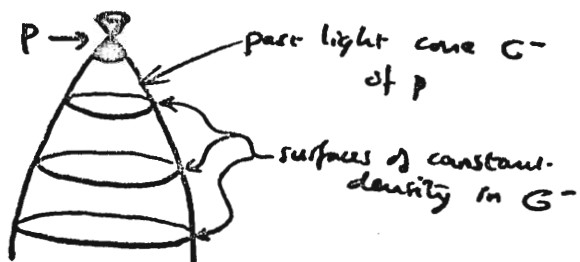 P →
past light cone C⁻
of p
surfaces of constant
density in C⁻